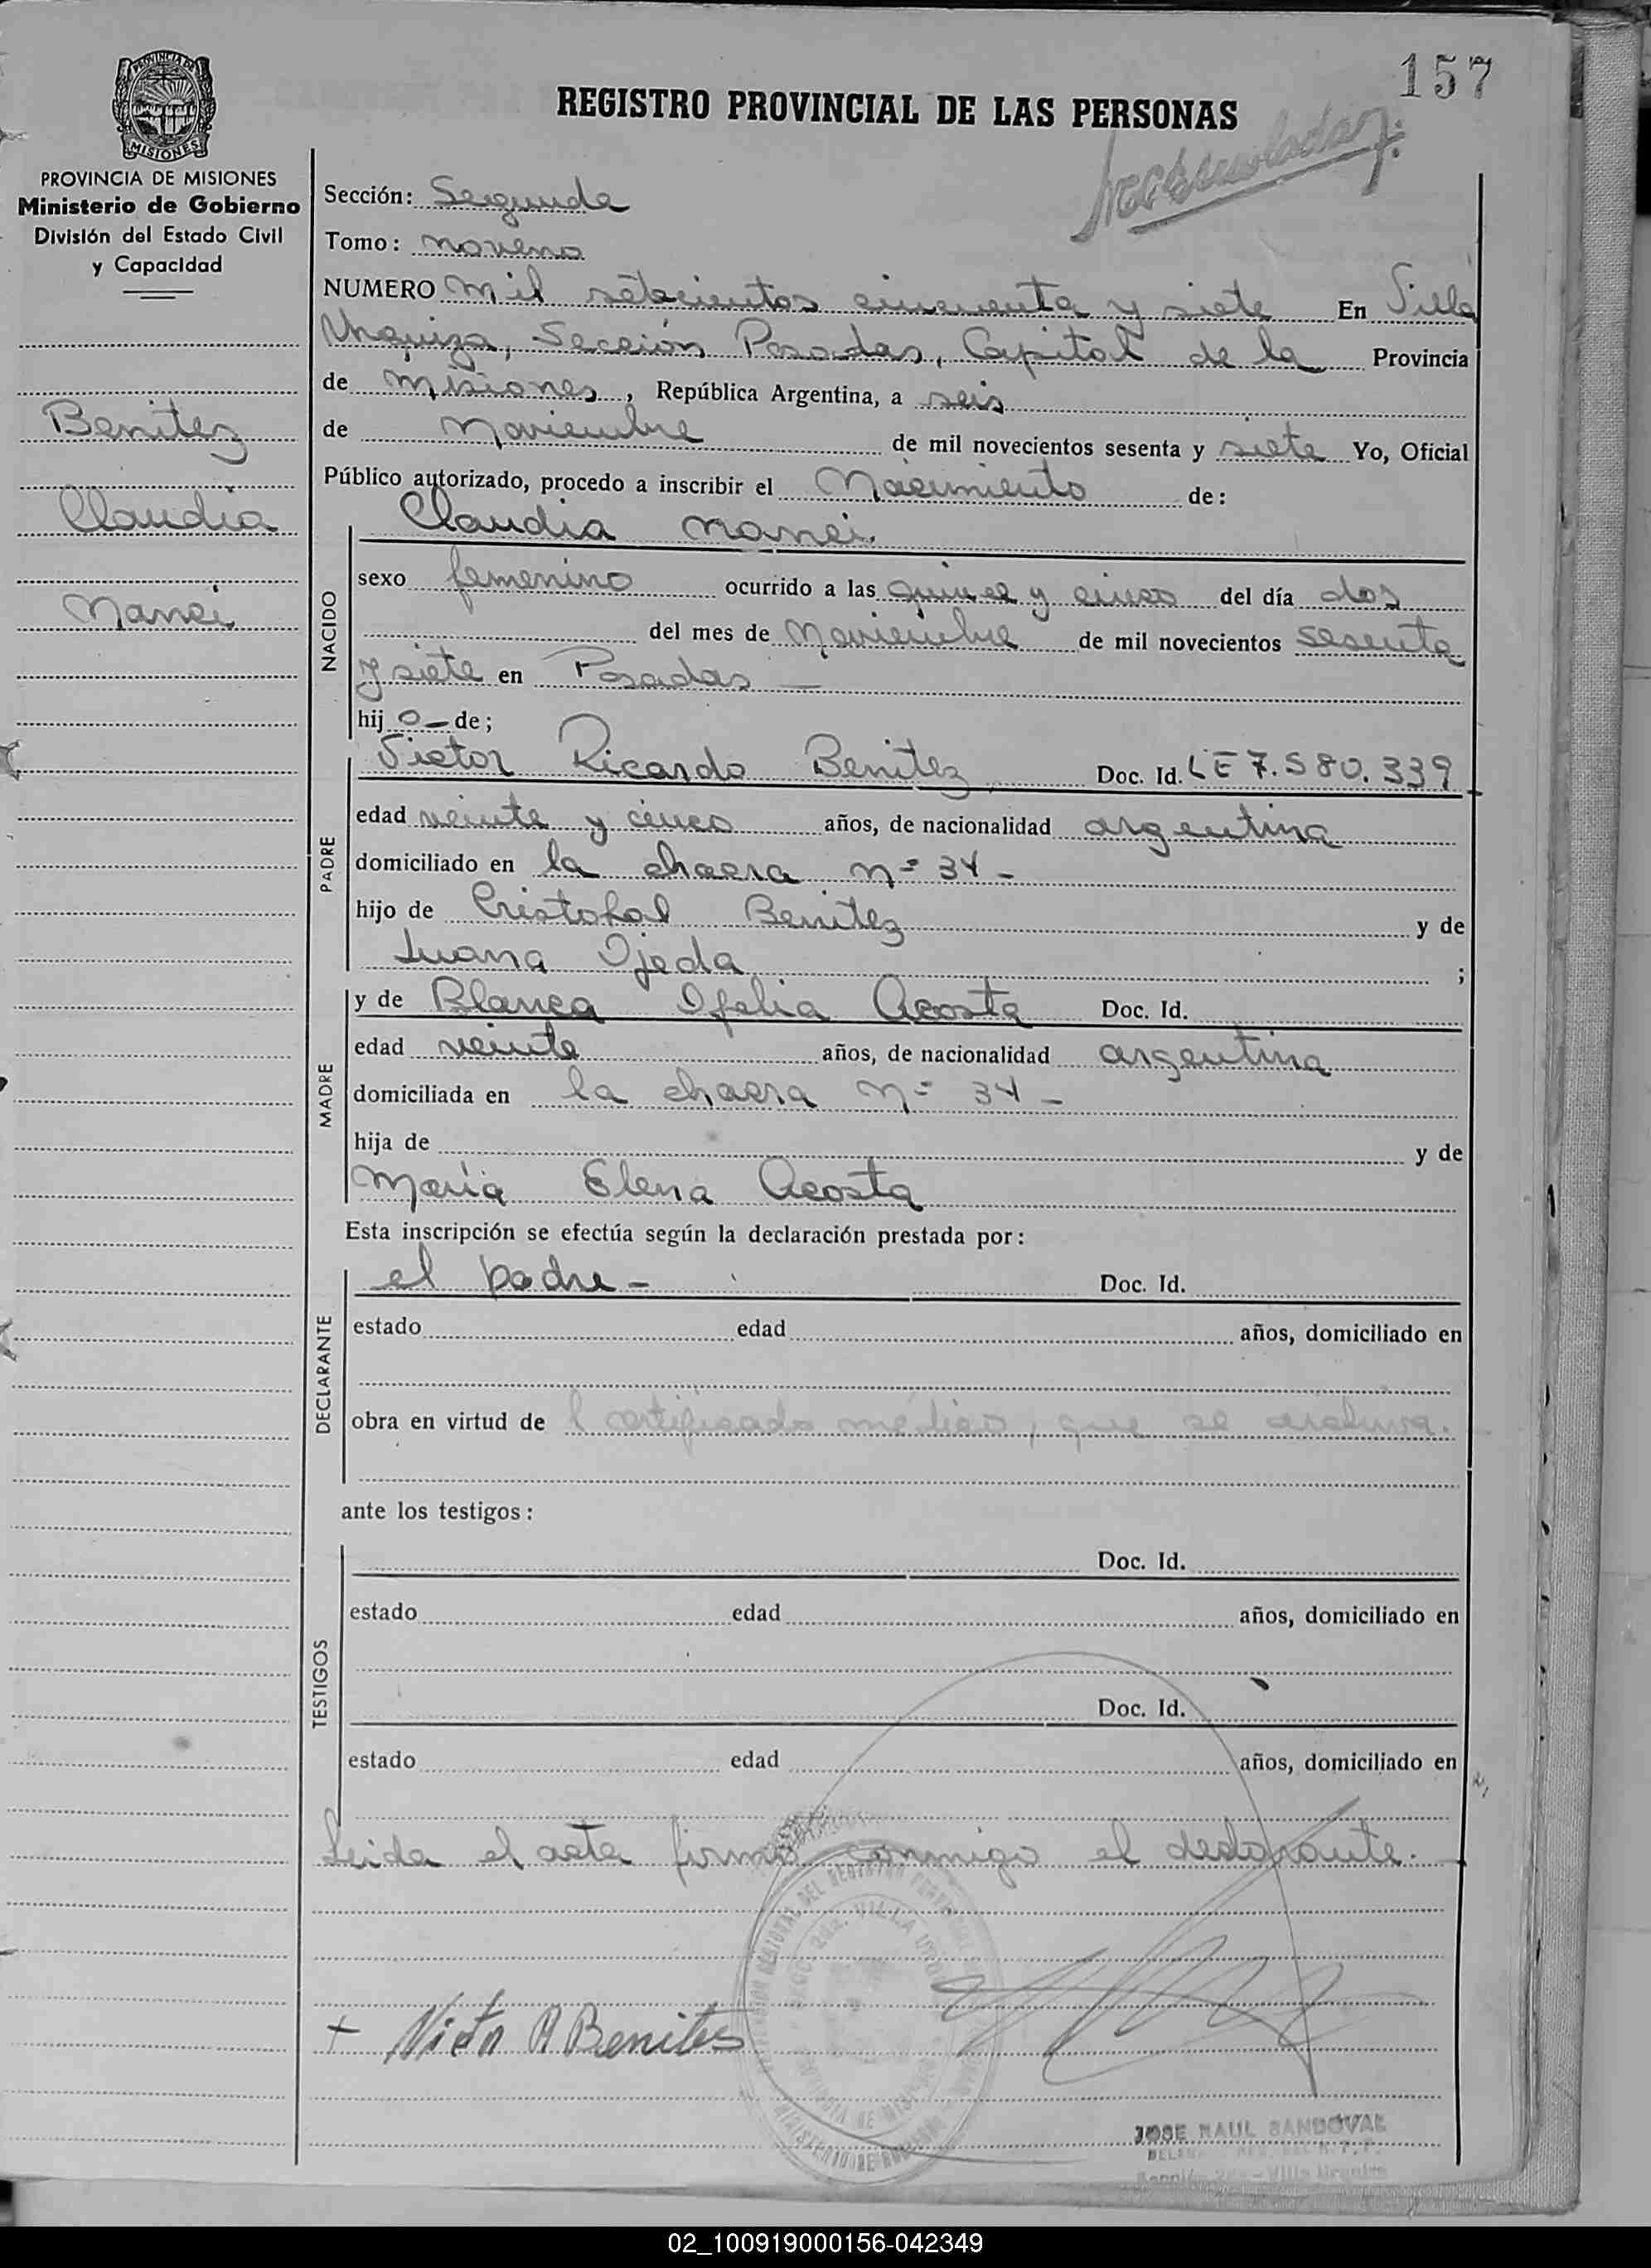 157
REGISTRO PROVINCIAL DE LAS PERSONAS
PROVINCIA DE
MISIONES
PROVINCIA DE MISIONES
Ministerio de Gobierno
División del Estado Civil
y Capacidad
Benitez
Claudia
Nanci
Sección: Segunda
Tomo: noveno
NUMERO Mil setecientos cincuenta y siete En Villa
Urquiza, Sección Posadas, Capital de la Provincia
de Misiones, República Argentina, a seis
de Noviembre de mil novecientos sesenta y siete Yo, Oficial
Público autorizado, procedo a inscribir el Nacimiento de:
Claudia Nanci.
NACIDO
sexo femenino ocurrido a las quince y cinco del día dos
del mes de Noviembre de mil novecientos sesenta
y siete en Posadas —
hij o — de;
PADRE
Victor Ricardo Benitez Doc. Id. LE 7.580.339
edad veinte y cinco años, de nacionalidad argentina
domiciliado en la chacra nº 34 -
hijo de Cristobal Benitez y de
Juana Ojeda ;
MADRE
y de Blanca Ofelia Acosta Doc. Id.
edad veinte años, de nacionalidad argentina
domiciliada en la chacra nº 34 -
hija de y de
Maria Elena Acosta
Esta inscripción se efectúa según la declaración prestada por:
DECLARANTE
el padre - Doc. Id.
estado edad años, domiciliado en
obra en virtud de l certificado médico, que se archiva.
ante los testigos:
TESTIGOS
Doc. Id.
estado edad años, domiciliado en
Doc. Id.
estado edad años, domiciliado en
Leida el acta firma conmigo el declarante.
+ Victor R Benites
JOSE RAUL SANDOVAL
02_100919000156-042349